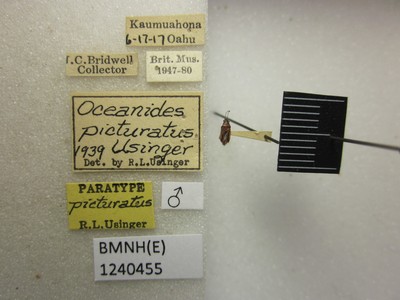 Kaumuahona
6-17-17 Oahu
J.C. Bridwell
Collector
Brit. Mus.
1947-80
Oceanides
picturatus
1939 Usinger
Det. by R.L.Usinger
PARATYPE
picturatus
R.L.Usinger
♂
BMNH(E)
1240455